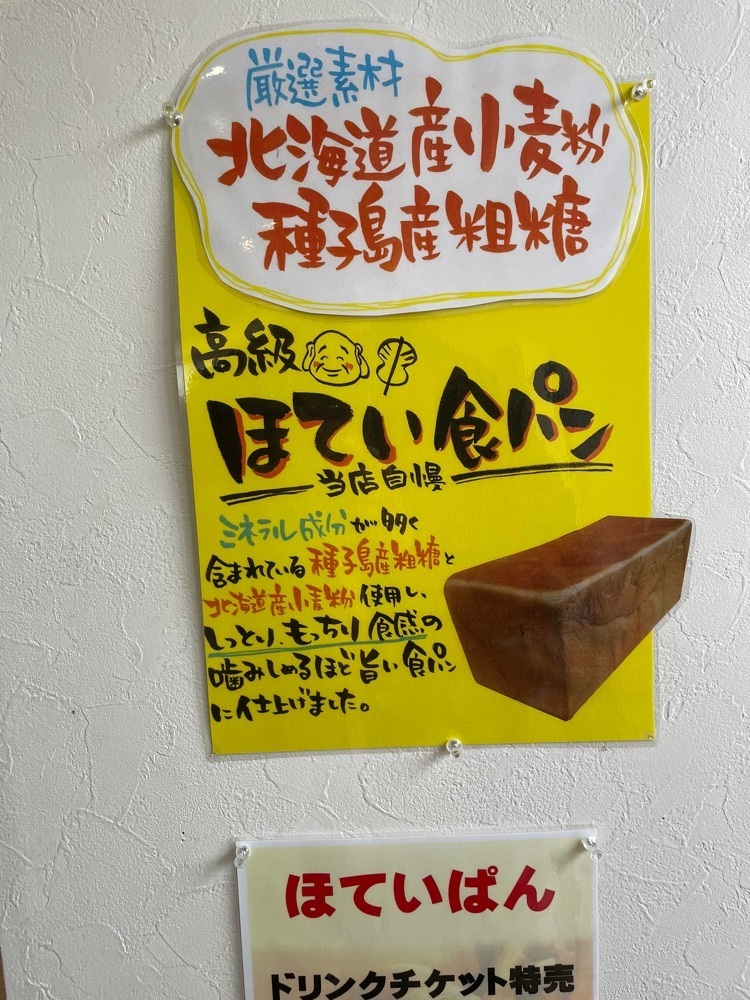 厳選素材
北海道産小麦粉
種子島産粗糖
高級
ほてい食パン
当店自慢
ミネラル成分が多く
含まれている種子島産粗糖と
北海道産小麦粉使用し、
しっとり、もっちり食感の
噛みしめるほど旨い食パン
に仕上げました。
ほていぱん
ドリンクチケット特売